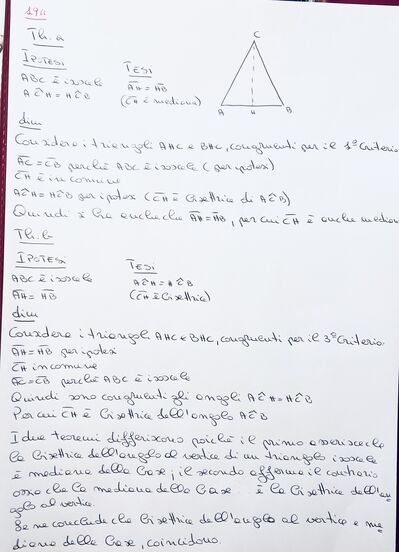 19a
Th. a
IPOTESI TESI
ABC è isoscele AH = HB
AĈH = HĈB (CH è mediana)
C
A H B
dim
Considero i triangoli AHC e BHC, congruenti per il 1° Criterio
AC = CB perché ABC è isoscele (per ipotesi)
CH è in comune
AĈH = HĈB per ipotesi (CH è bisettrice di AĈB)
Quindi si ha anche che AH = HB, per cui CH è anche mediana
Th. b
IPOTESI TESI
ABC è isoscele AĈH = HĈB
AH = HB (CH è bisettrice)
dim
Considero i triangoli AHC e BHC, congruenti per il 3° Criterio
AH = HB per ipotesi
CH in comune
AC = CB perché ABC è isoscele
Quindi sono congruenti gli angoli AĈH = HĈB
Per cui CH è bisettrice dell'angolo AĈB
I due teoremi differiscono poiché il primo asserisce che
la bisettrice dell'angolo al vertice di un triangolo isoscele
è mediana della base; il secondo afferma il contrario
ossia che la mediana della base è la bisettrice dell'an-
golo al vertice.
Se ne conclude che bisettrice dell'angolo al vertice e me-
diana della base, coincidono.